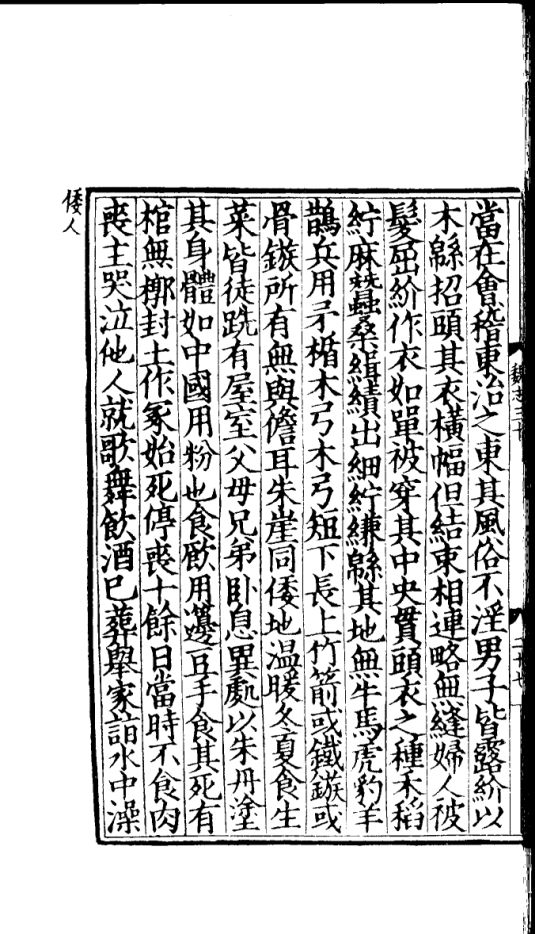 當在會稽東治之東其風俗不淫男子皆露紒以
木緜招頭其衣橫幅但結束相連略無縫婦人被
髮屈紒作衣如單被穿其中央貫頭衣之種禾稻
紵麻蠶桑緝績出細紵縑緜其地無牛馬虎豹羊
鵲兵用矛楯木弓木弓短下長上竹箭或鐵鏃或
骨鏃所有無與儋耳朱崖同倭地温暖冬夏食生
菜皆徒跣有屋室父母兄弟卧息異處以朱丹塗
其身體如中國用粉也食飲用籩豆手食其死有
棺無槨封土作冢始死停喪十餘日當時不食肉
喪主哭泣他人就歌舞飲酒已葬舉家詣水中澡
倭人